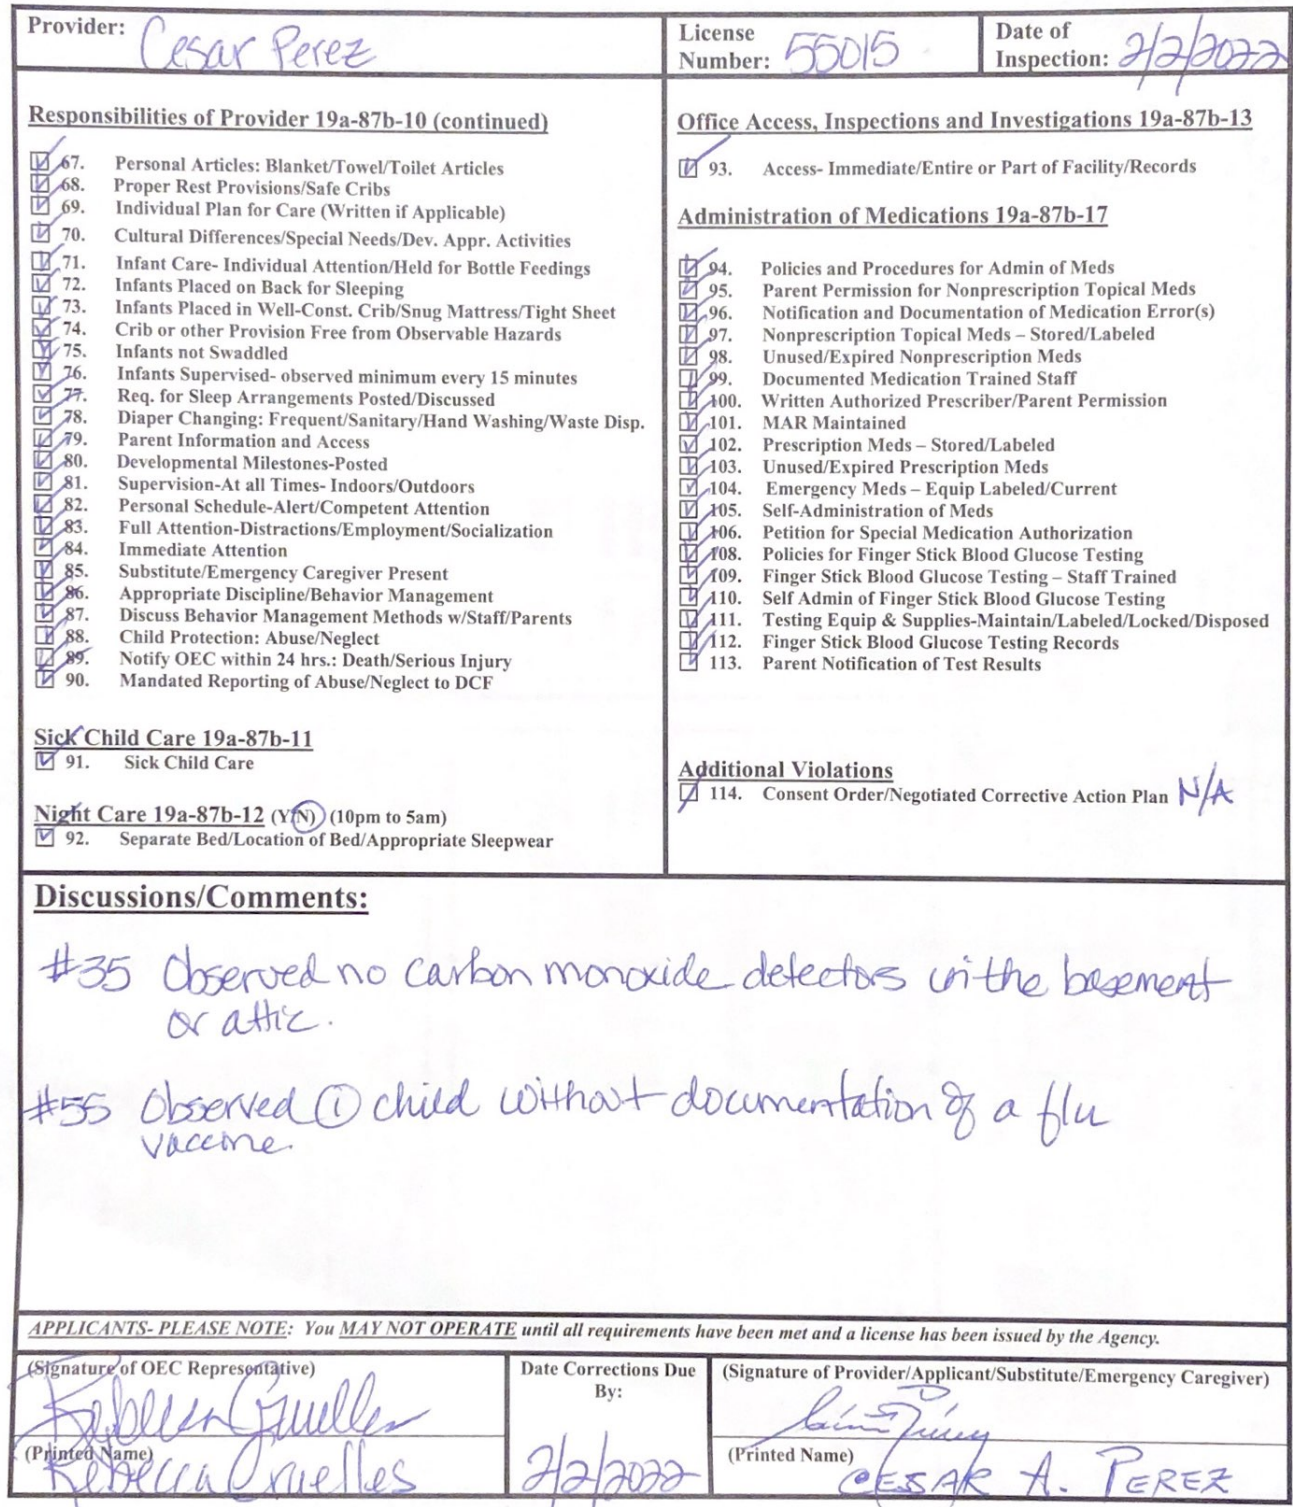 Provider: Cesar Perez
License Number: 55015
Date of Inspection: 2/2/2022
Responsibilities of Provider 19a-87b-10 (continued)
67. Personal Articles: Blanket/Towel/Toilet Articles
68. Proper Rest Provisions/Safe Cribs
69. Individual Plan for Care (Written if Applicable)
70. Cultural Differences/Special Needs/Dev. Appr. Activities
71. Infant Care- Individual Attention/Held for Bottle Feedings
72. Infants Placed on Back for Sleeping
73. Infants Placed in Well-Const. Crib/Snug Mattress/Tight Sheet
74. Crib or other Provision Free from Observable Hazards
75. Infants not Swaddled
76. Infants Supervised- observed minimum every 15 minutes
77. Req. for Sleep Arrangements Posted/Discussed
78. Diaper Changing: Frequent/Sanitary/Hand Washing/Waste Disp.
79. Parent Information and Access
80. Developmental Milestones-Posted
81. Supervision-At all Times- Indoors/Outdoors
82. Personal Schedule-Alert/Competent Attention
83. Full Attention-Distractions/Employment/Socialization
84. Immediate Attention
85. Substitute/Emergency Caregiver Present
86. Appropriate Discipline/Behavior Management
87. Discuss Behavior Management Methods w/Staff/Parents
88. Child Protection: Abuse/Neglect
89. Notify OEC within 24 hrs.: Death/Serious Injury
90. Mandated Reporting of Abuse/Neglect to DCF
Sick Child Care 19a-87b-11
91. Sick Child Care
Night Care 19a-87b-12 (Y/N) (10pm to 5am)
92. Separate Bed/Location of Bed/Appropriate Sleepwear
Office Access, Inspections and Investigations 19a-87b-13
93. Access- Immediate/Entire or Part of Facility/Records
Administration of Medications 19a-87b-17
94. Policies and Procedures for Admin of Meds
95. Parent Permission for Nonprescription Topical Meds
96. Notification and Documentation of Medication Error(s)
97. Nonprescription Topical Meds – Stored/Labeled
98. Unused/Expired Nonprescription Meds
99. Documented Medication Trained Staff
100. Written Authorized Prescriber/Parent Permission
101. MAR Maintained
102. Prescription Meds – Stored/Labeled
103. Unused/Expired Prescription Meds
104. Emergency Meds – Equip Labeled/Current
105. Self-Administration of Meds
106. Petition for Special Medication Authorization
108. Policies for Finger Stick Blood Glucose Testing
109. Finger Stick Blood Glucose Testing – Staff Trained
110. Self Admin of Finger Stick Blood Glucose Testing
111. Testing Equip & Supplies-Maintain/Labeled/Locked/Disposed
112. Finger Stick Blood Glucose Testing Records
113. Parent Notification of Test Results
Additional Violations
114. Consent Order/Negotiated Corrective Action Plan N/A
Discussions/Comments:
#35 Observed no carbon monoxide detectors in the basement
or attic.
#55 Observed ① child without documentation of a flu
vaccine.
APPLICANTS- PLEASE NOTE: You MAY NOT OPERATE until all requirements have been met and a license has been issued by the Agency.
(Signature of OEC Representative)
Rebecca Cruelles
(Printed Name)
Rebecca Cruelles
Date Corrections Due
By:
2/2/2022
(Signature of Provider/Applicant/Substitute/Emergency Caregiver)
(Printed Name)
CESAR A. PEREZ